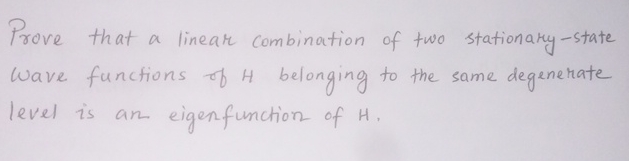 Prove that a linear combination of two stationary-state
wave functions of H belonging to the same degenerate
level is an eigenfunction of H.